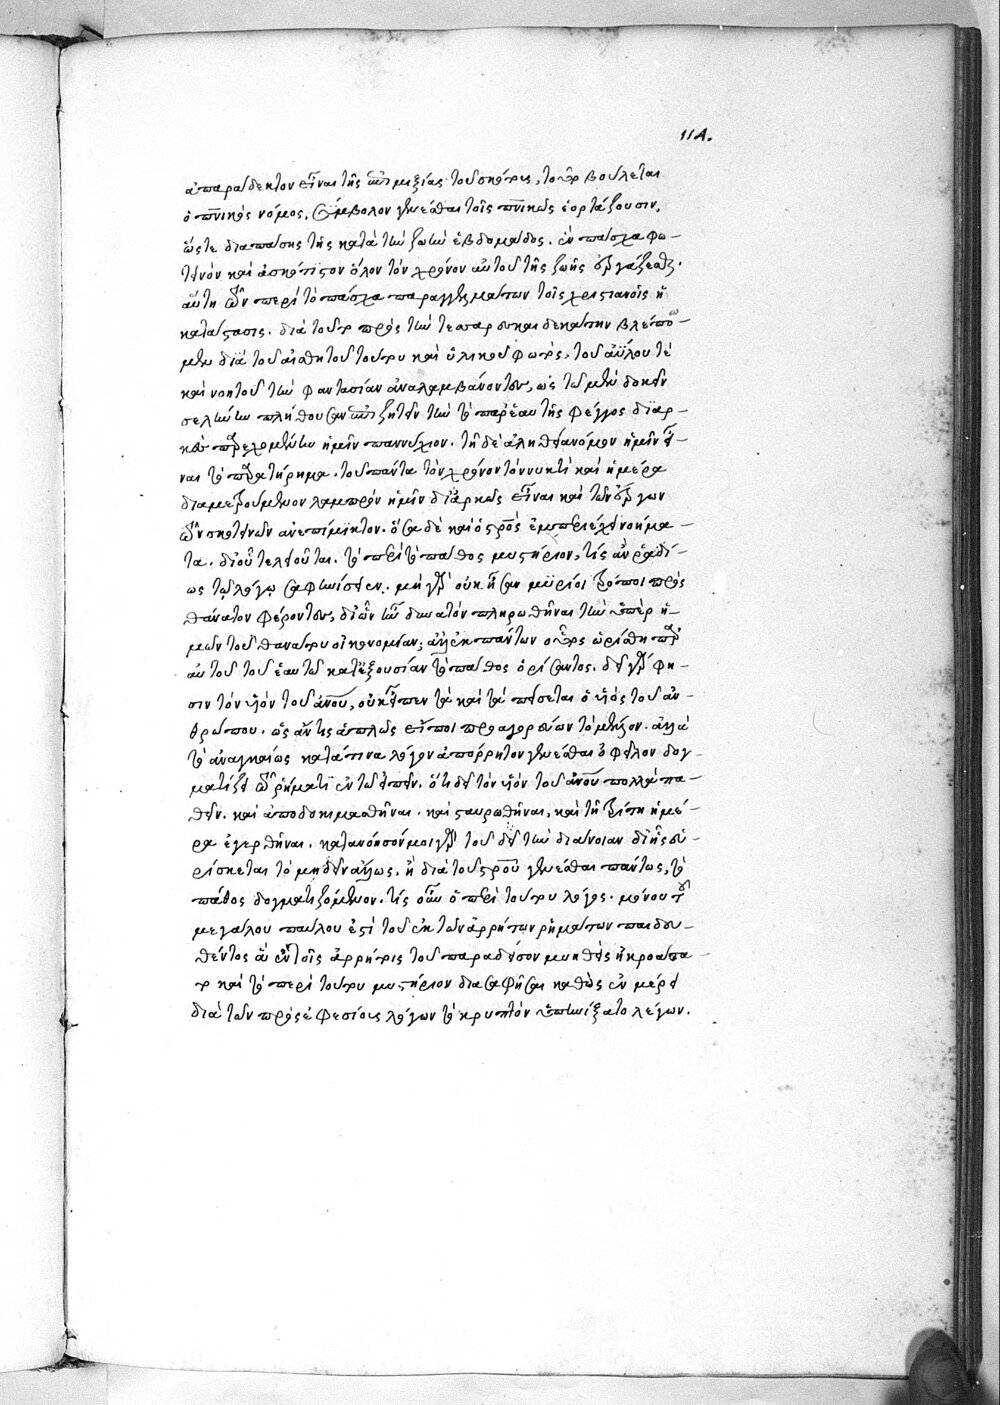 114.
ἀπαράδεκτον εἶναι τῆς ἐπιμιξίας τοῦ σκότους, τοῦτο βούλεται
ὁ πνικὸς νόμος, σύμβολον γινέσθαι τοῖς πνικῶς ἑορτάζουσιν,
ὥστε διαπάσης τῆς κατὰ τὴν ζωὴν ἑβδομάδος. ἓν πάσχα φω-
τεινὸν καὶ ἀσκότιστον ὅλον τὸν χρόνον αὐτοῦ τῆς ζωῆς ἐργάζεσθαι.
αὕτη τῶν περὶ τὸ πάσχα παραγγελμάτων τοῖς χριστιανοῖς ἡ
κατάστασις. διὰ τοῦτο πρὸς τὴν τεσσαρεσκαιδεκάτην βλέπο-
μεν διὰ τοῦ αἰσθητοῦ τούτου καὶ ὑλικοῦ φωτός, τοῦ ἀΰλου τὲ
καὶ νοητοῦ τὴν φαντασίαν ἀναλαμβάνοντες, ὡς τῷ μὲν δοκεῖν
σελήνην πλήθουσαν ἐπιζητεῖν τὴν τὸ παρ' ἑαυτῆς φέγγος διαρ-
κῶς παρεχομένην ἡμῖν παννύχιον. τῇ δὲ ἀληθείᾳ νόμον ἡμῖν εἶ-
ναι τὸ παρατήρημα. τοῦ πάντα τὸν χρόνον τὸν νυκτὶ καὶ ἡμέρᾳ
διαμετρούμενον λαμπρὸν ἡμῖν διαρκῶς εἶναι καὶ τῶν ἔργων
τῶν σκοτεινῶν ἀνεπίμικτον. ὅσα δὲ καὶ ὁ σταυρὸς ἐμπεριέχει νοήμα-
τα. δι' οὗ τελειοῦται. τὸ περὶ τὸ πάθος μυστήριον, τίς ἂν ῥᾳδί-
ως τῷ λόγῳ σαφηνίσειεν. μὴ γὰρ οὐκ ἦσαν μύριοι τρόποι πρὸς
θάνατον φέροντες, δι' ὧν ἦν δυνατὸν πληρωθῆναι τὴν ὑπὲρ ἡ-
μῶν τοῦ θανάτου οἰκονομίαν; ἀλλ' ἐκ πάντων οὗτος ὡρίσθη παρ'
αὐτοῦ τοῦ ἑαυτῷ κατ' ἐξουσίαν τὸ πάθος ὁρίσαντος. δεῖ γὰρ φη-
σιν τὸν υἱὸν τοῦ ἀνου, οὐκ εἶπεν τὰ καὶ τὰ πείσεται ὁ υἱὸς τοῦ ἀν-
θρώπου. ὡς ἄν τις ἁπλῶς εἴποι προαγορεύων τὸ μέλλον. ἀλλὰ
τὸ ἀναγκαίως κατά τινα λόγον ἀπόρρητον γινέσθαι ὀφεῖλον δογ-
ματίζει τῷ ῥήματι ἐν τῷ εἰπεῖν. ὅτι δεῖ τὸν υἱὸν τοῦ ἀνου πολλὰ πα-
θεῖν. καὶ ἀποδοκιμασθῆναι. καὶ σταυρωθῆναι, καὶ τῇ τρίτῃ ἡμέ-
ρᾳ ἐγερθῆναι. κατανοήσον μοι γὰρ τοῦ δεῖ τὴν διάνοιαν δι' ἧς εὑ-
ρίσκεται τὸ μηδεν ἄλλως. ἢ διὰ τοῦ σταυροῦ γινέσθαι πάντως, τὸ
πάθος δογματιζόμενον. τίς οὖν ὁ περὶ τούτου λόγος. μόνου τοῦ
μεγάλου παύλου ἐστὶ τοῦ ἐκ τῶν ἀρρήτων ῥημάτων παιδευ-
θέντος ἃ ἐν τοῖς ἀρρήτοις τοῦ παραδείσου μυηθεὶς ἠκροάσα-
το καὶ τὸ περὶ τούτου μυστήριον διασαφῆσαι καθὼς ἐν μέρει
διὰ τῶν πρὸς ἐφεσίους λόγων τὸ κρυπτὸν ὑπῃνίξατο λέγων.